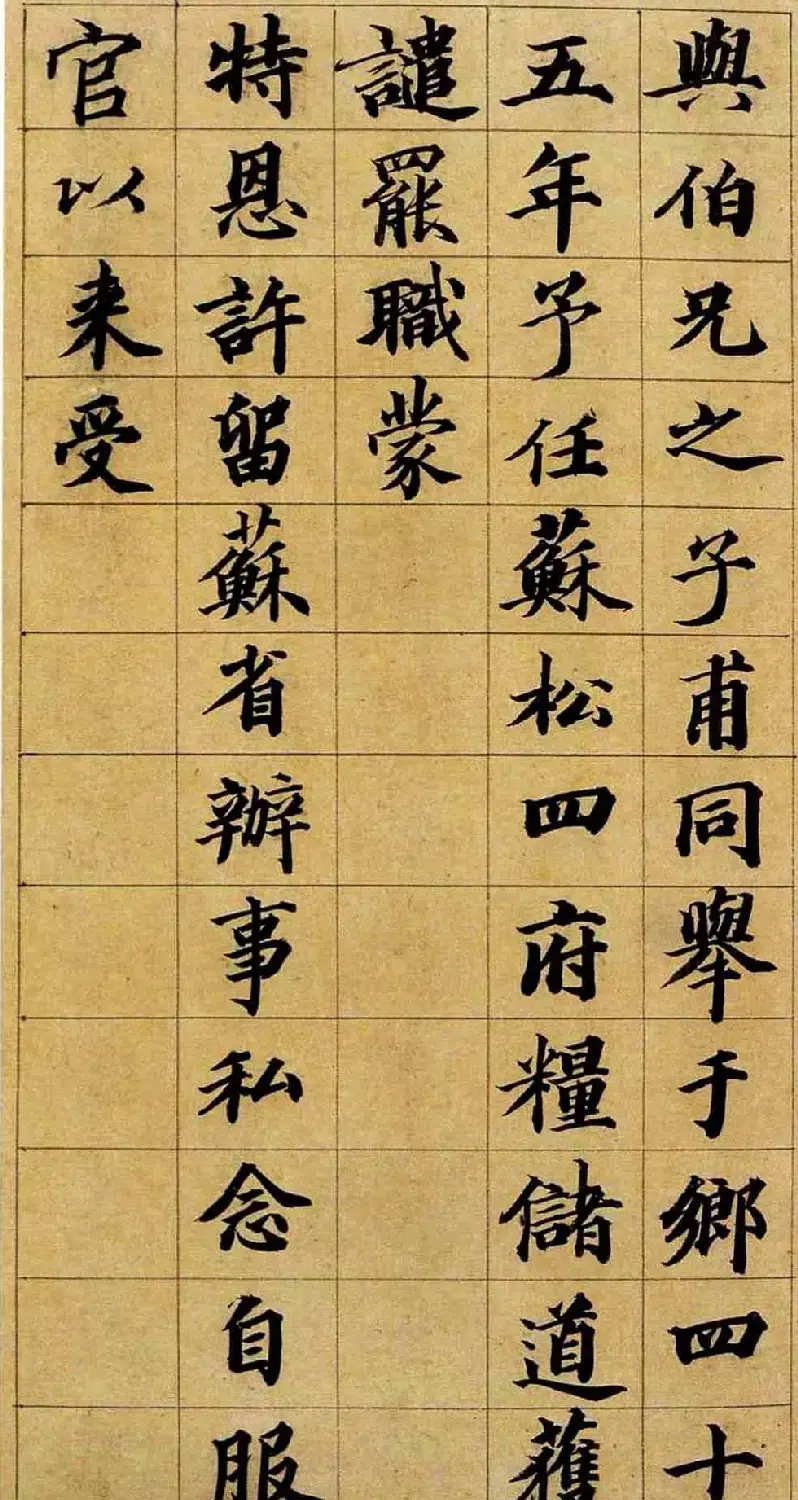 與伯兄之子甫同舉于鄉四十
五年予任蘇松四府糧儲道獲
譴罷職蒙
特恩許留蘇省辦事私念自服
官以来受